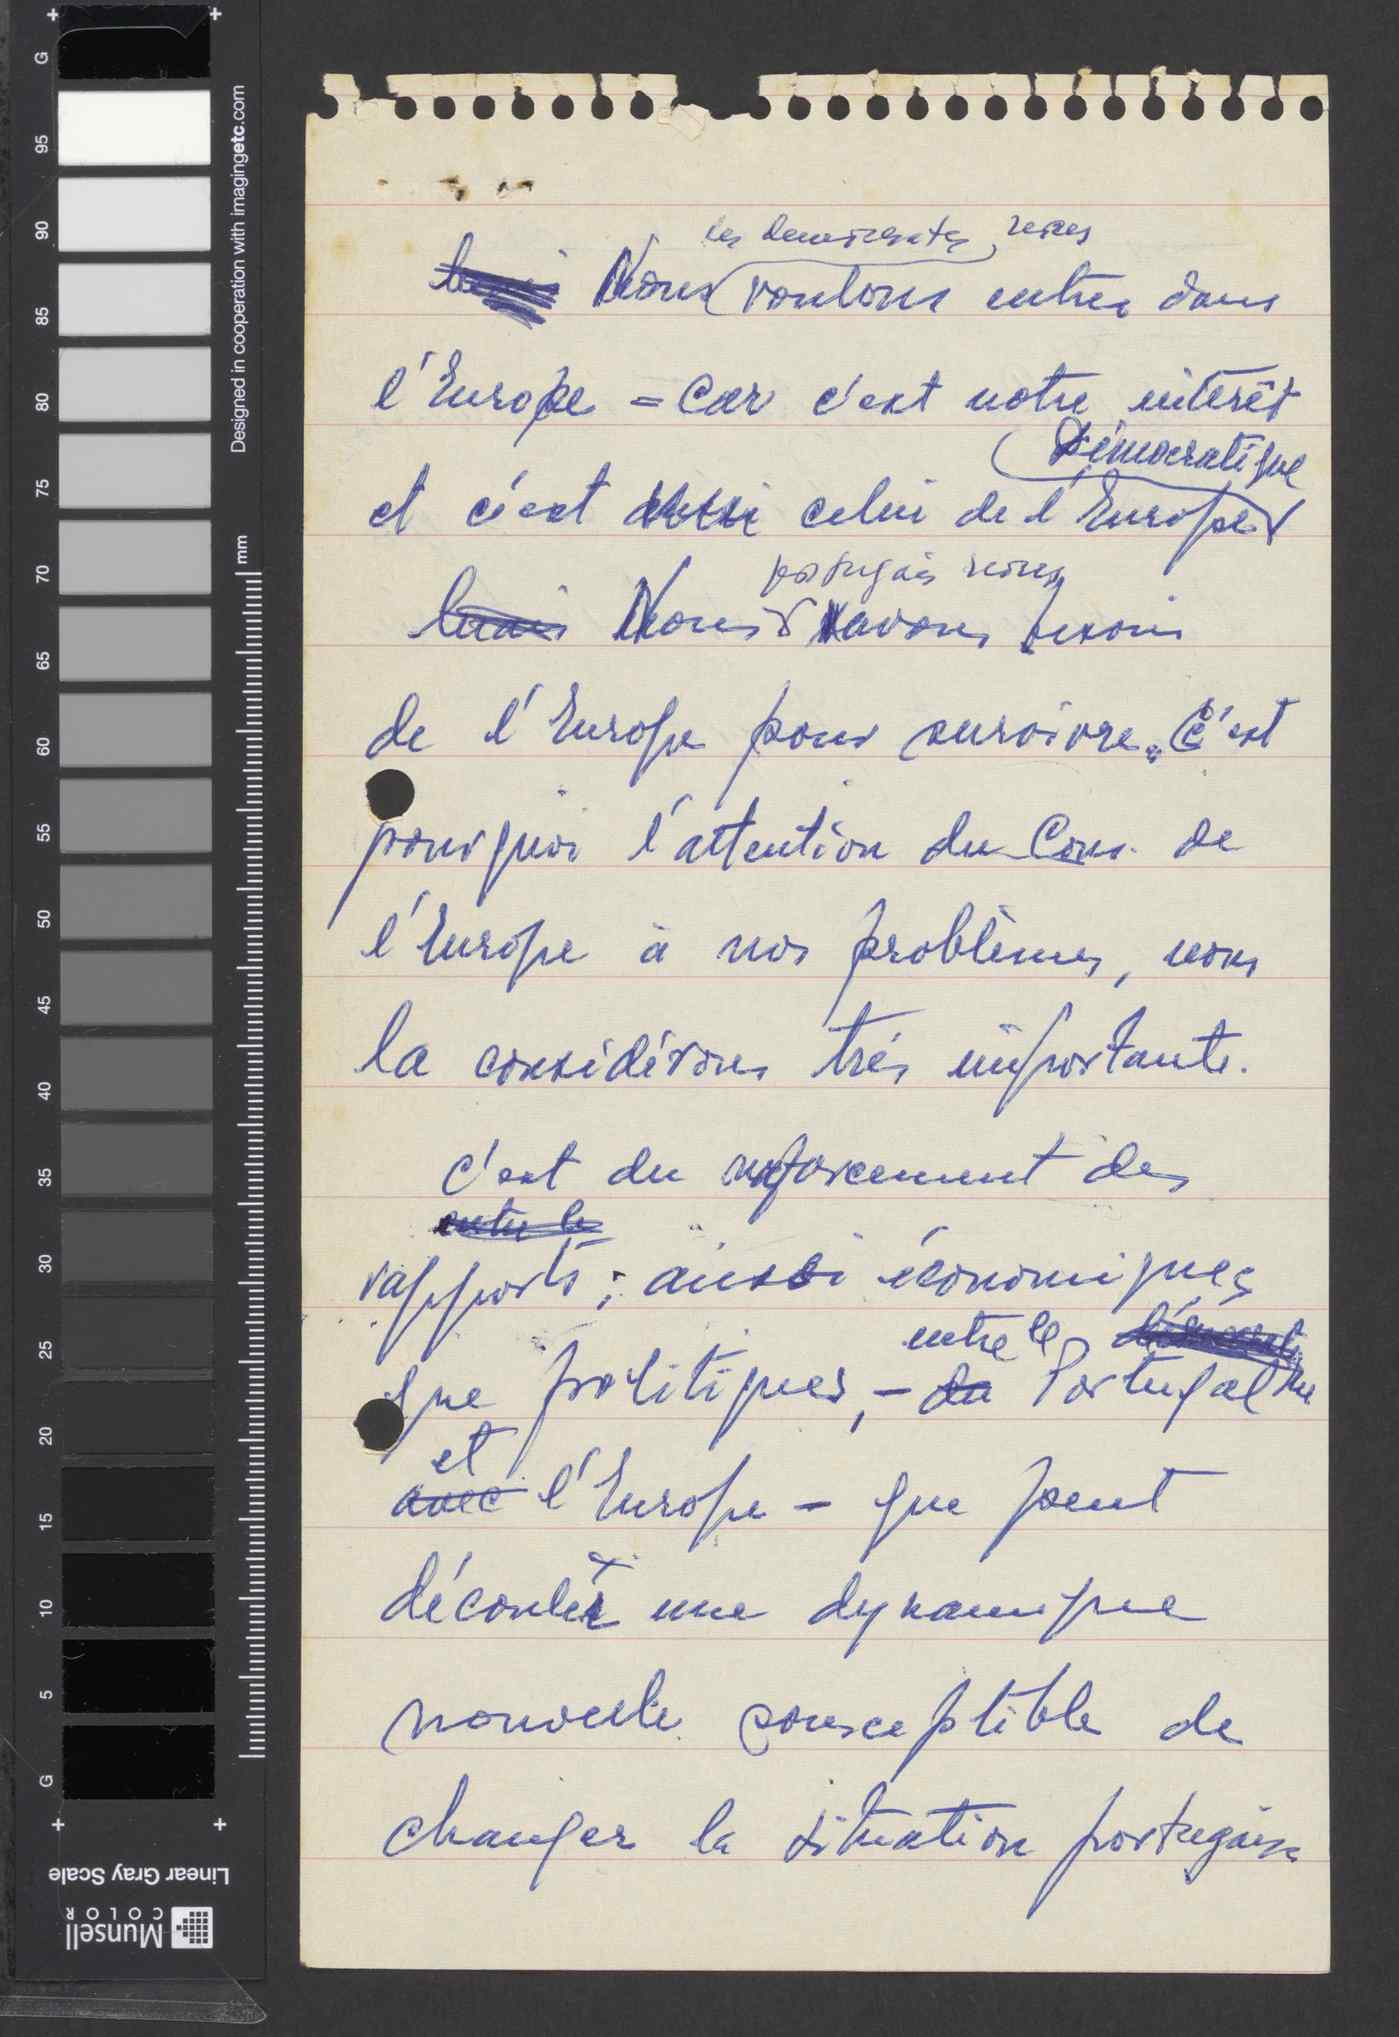 les democrates, nous
Nous voulons entrer dans
l'Europe = Car c'est notre intérêt
Démocratique
et c'est aussi celui de l'Europe
portugais nous
mais Nous avons besoin
de l'Europe pour survivre. C'est
pourquoi l'attention du Cons. de
l'Europe à nos problèmes, nous
la considérons très importante.
c'est du reforcement des
entre le
rapports; aussi économiques
entre le
que politiques, - du Portugal
et
avec l'Europe - que peut
découler une dynamique
nouvelle sousceptible de
changer la situation portugaise
G
95
90
85
80
75
70
65
60
55
50
45
40
35
30
25
20
15
10
5
G
Designed in cooperation with imagingetc.com
mm
Linear Gray Scale
Munsell
COLOR